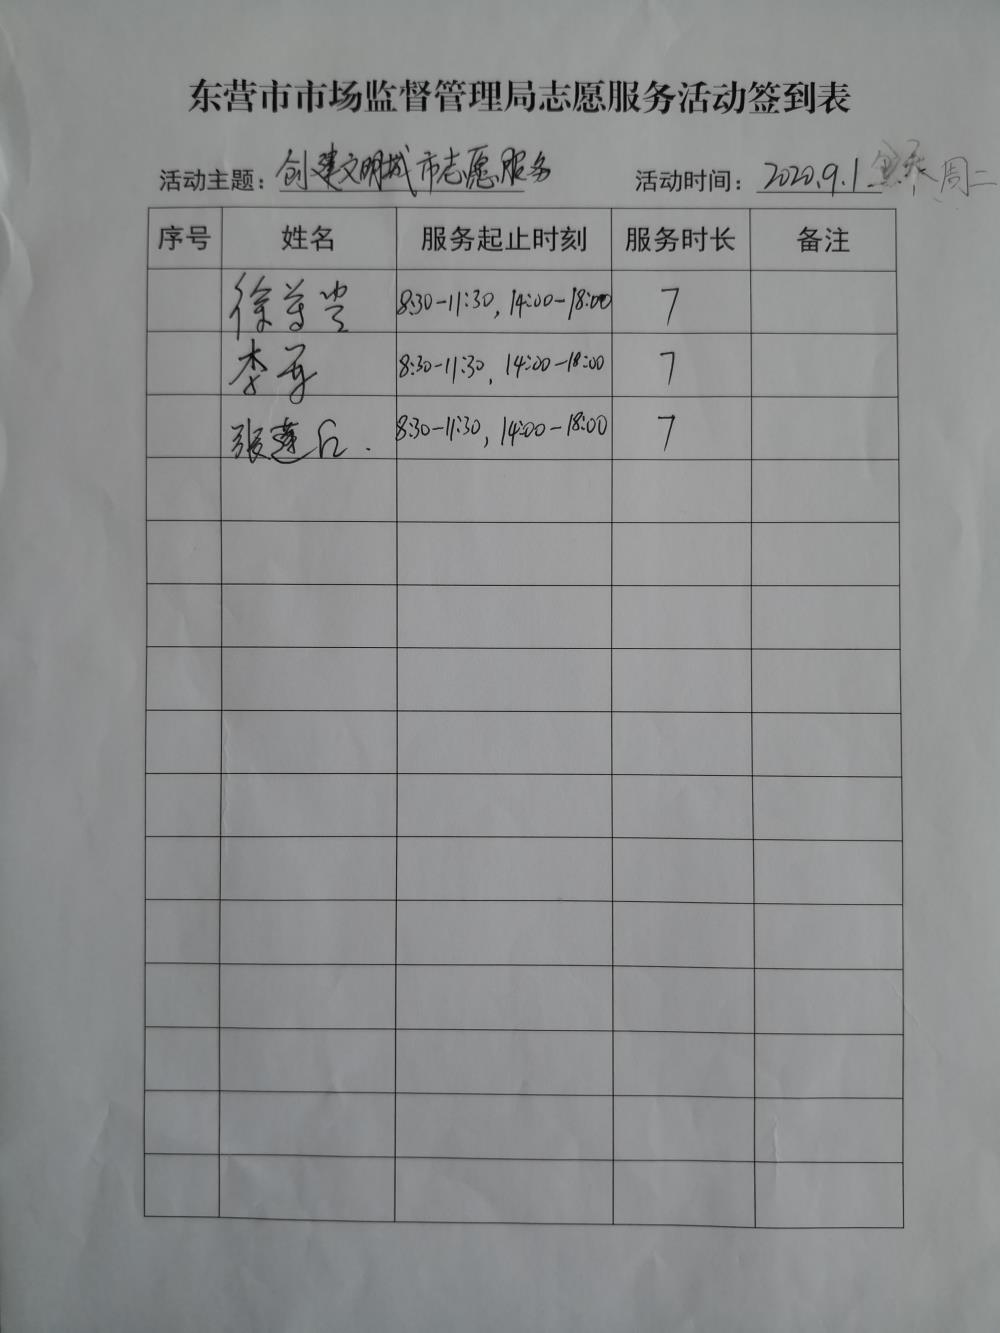 东营市市场监督管理局志愿服务活动签到表
活动主题：创建文明城市志愿服务 活动时间：2020.9.1 周二
序号 姓名 服务起止时刻 服务时长 备注
徐 8:30-11:30, 14:00-18:00 7
李 8:30-11:30, 14:00-18:00 7
张莲 8:30-11:30, 14:00-18:00 7